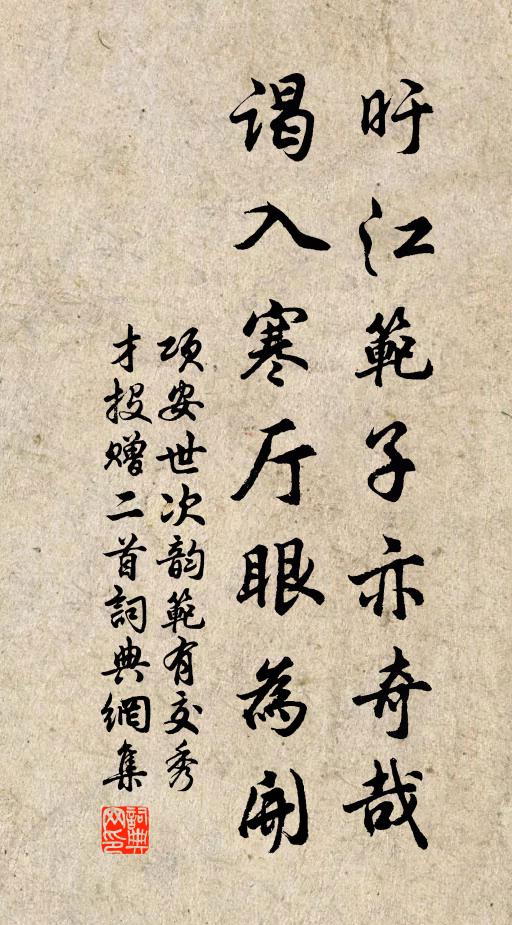 盱江範子亦奇哉
谒入寒厅眼為開
项安世次韵範有交秀
才投赠二首詞典網集
詞典网印